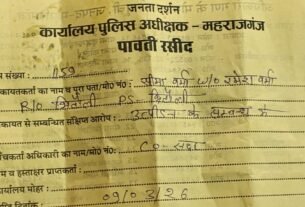 जनता दर्शन
कार्यालय पुलिस अधीक्षक - महराजगंज
पावती रसीद
संख्या : 159
कायतकर्ता का नाम व पूरा पता/मो0 नं0 : सीमा वर्मा W/O रमेश वर्मा
R/O PS
कायत से सम्बन्धित संक्षिप्त आरोप : उत्पीड़न के सम्बन्ध में
चकर्ता अधिकारी का नाम/मो0 नं0 : CO- सदर
म व हस्ताक्षर प्राप्तकर्ता :
र्यालय मोहर :
दिनांक : 09/03/26